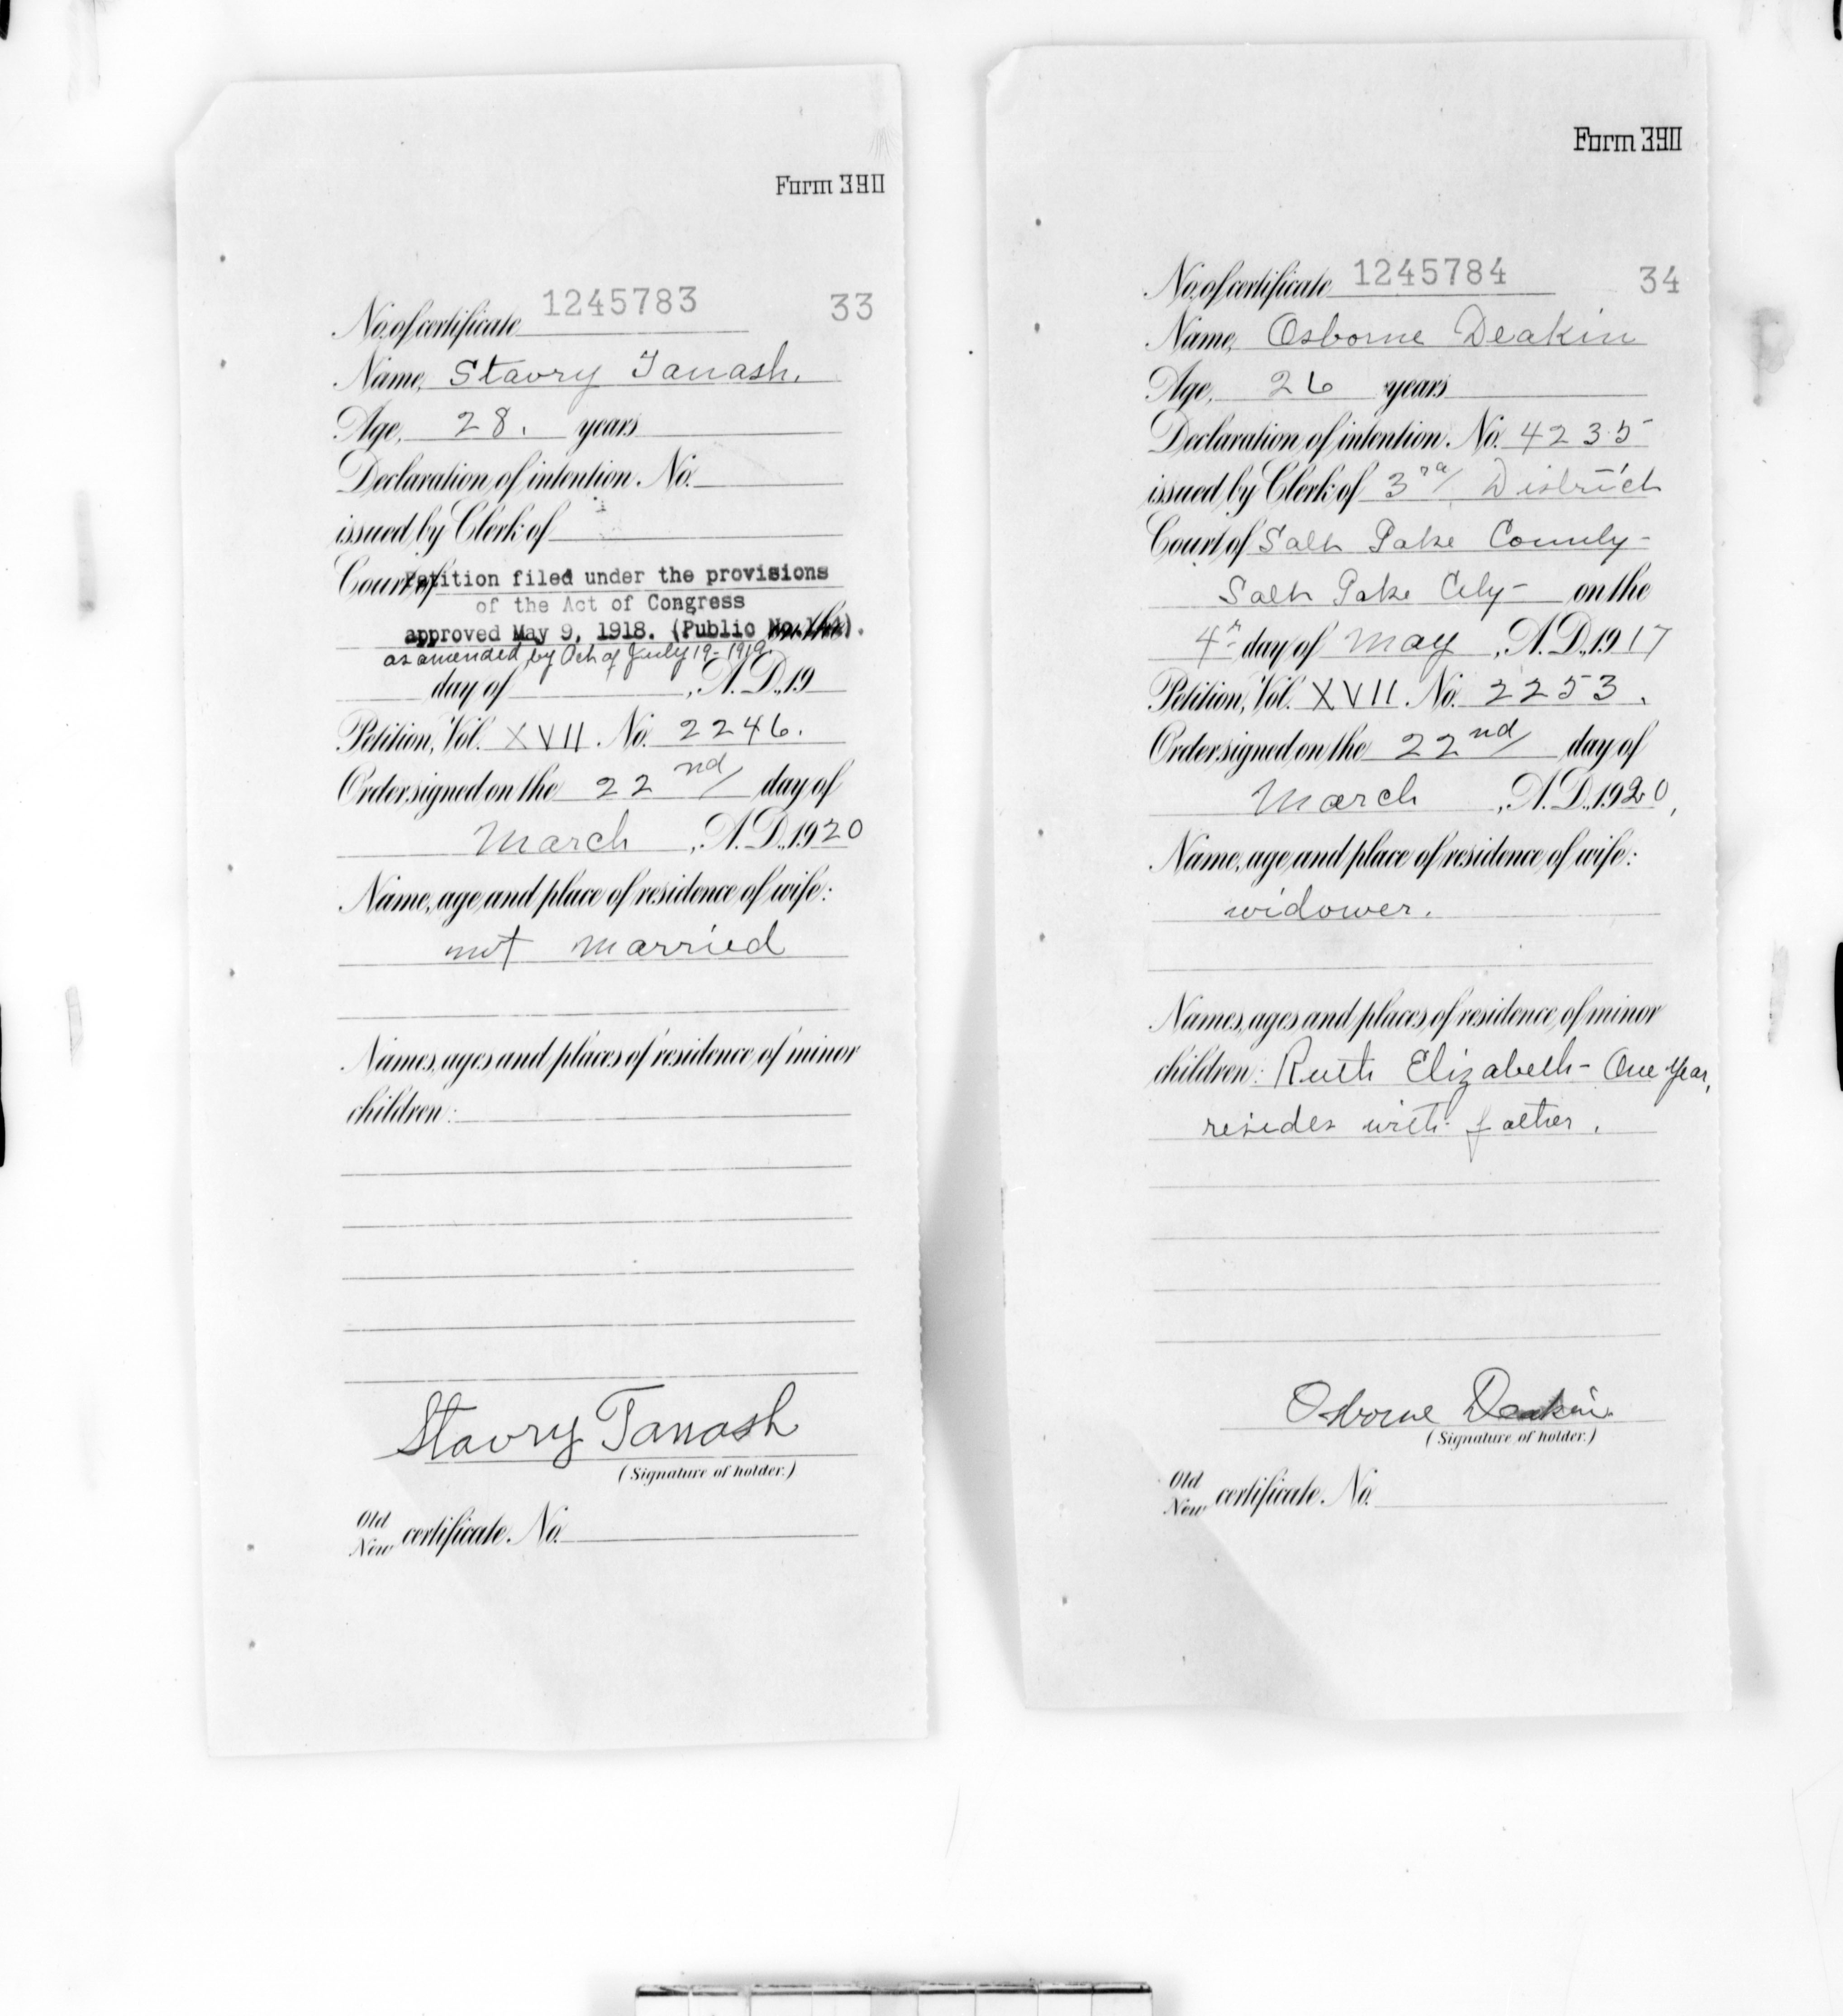 Form 390
No. of certificate 1245783 33
Name, Stavry Tanash.
Age, 28. years
Declaration of intention No.
issued by Clerk of
Court of Petition filed under the provisions
of the Act of Congress
approved May 9, 1918. (Public
as amended by Act of July 19-1919.
day of , A.D. 19
Petition, Vol. XVII No. 2246.
Order signed on the 22nd day of
March , A.D. 1920
Name, age and place of residence of wife:
not married
Names, ages and places of residence of minor
children:
Stavry Tanash
(Signature of holder.)
Old
New certificate No.
Form 390
No. of certificate 1245784 34
Name, Osborne Deakin
Age, 26 years
Declaration of intention No. 4235
issued by Clerk of 3rd District
Court of Salt Lake County-
Salt Lake City- on the
4th day of May , A.D. 1917
Petition, Vol. XVII No. 2253.
Order signed on the 22nd day of
March , A.D. 1920,
Name, age and place of residence of wife:
widower.
Names, ages and places of residence of minor
children: Ruth Elizabeth- One year,
resides with father.
Osborne Deakin
(Signature of holder.)
Old
New certificate No.